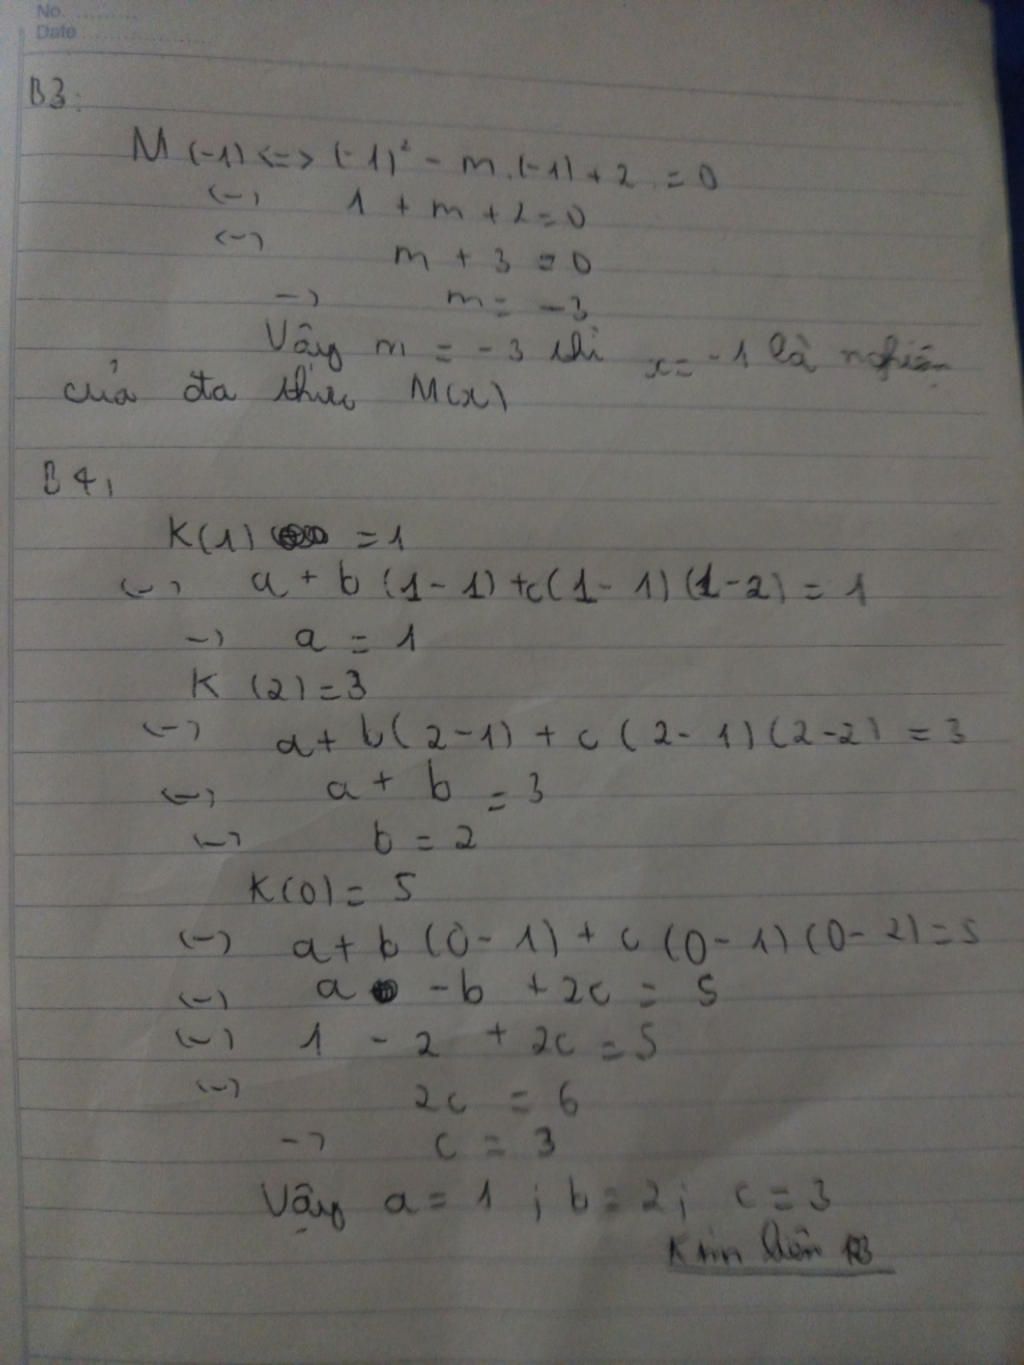 No. ..........
Date ....................
B3:
M(-1) <=> (-1)² - m.(-1) + 2 = 0
<-> 1 + m + 2 = 0
<-> m + 3 = 0
-> m = -3
Vậy m = -3 thì x = -1 là nghiệm
của đa thức M(x)
B4,
K(1) = 1
<-> a + b(1-1) + c(1-1)(1-2) = 1
-> a = 1
K(2) = 3
<-> a + b(2-1) + c(2-1)(2-2) = 3
<-> a + b = 3
<-> b = 2
K(0) = 5
<-> a + b(0-1) + c(0-1)(0-2) = 5
<-> a - b + 2c = 5
<-> 1 - 2 + 2c = 5
<-> 2c = 6
-> c = 3
Vậy a = 1; b = 2; c = 3